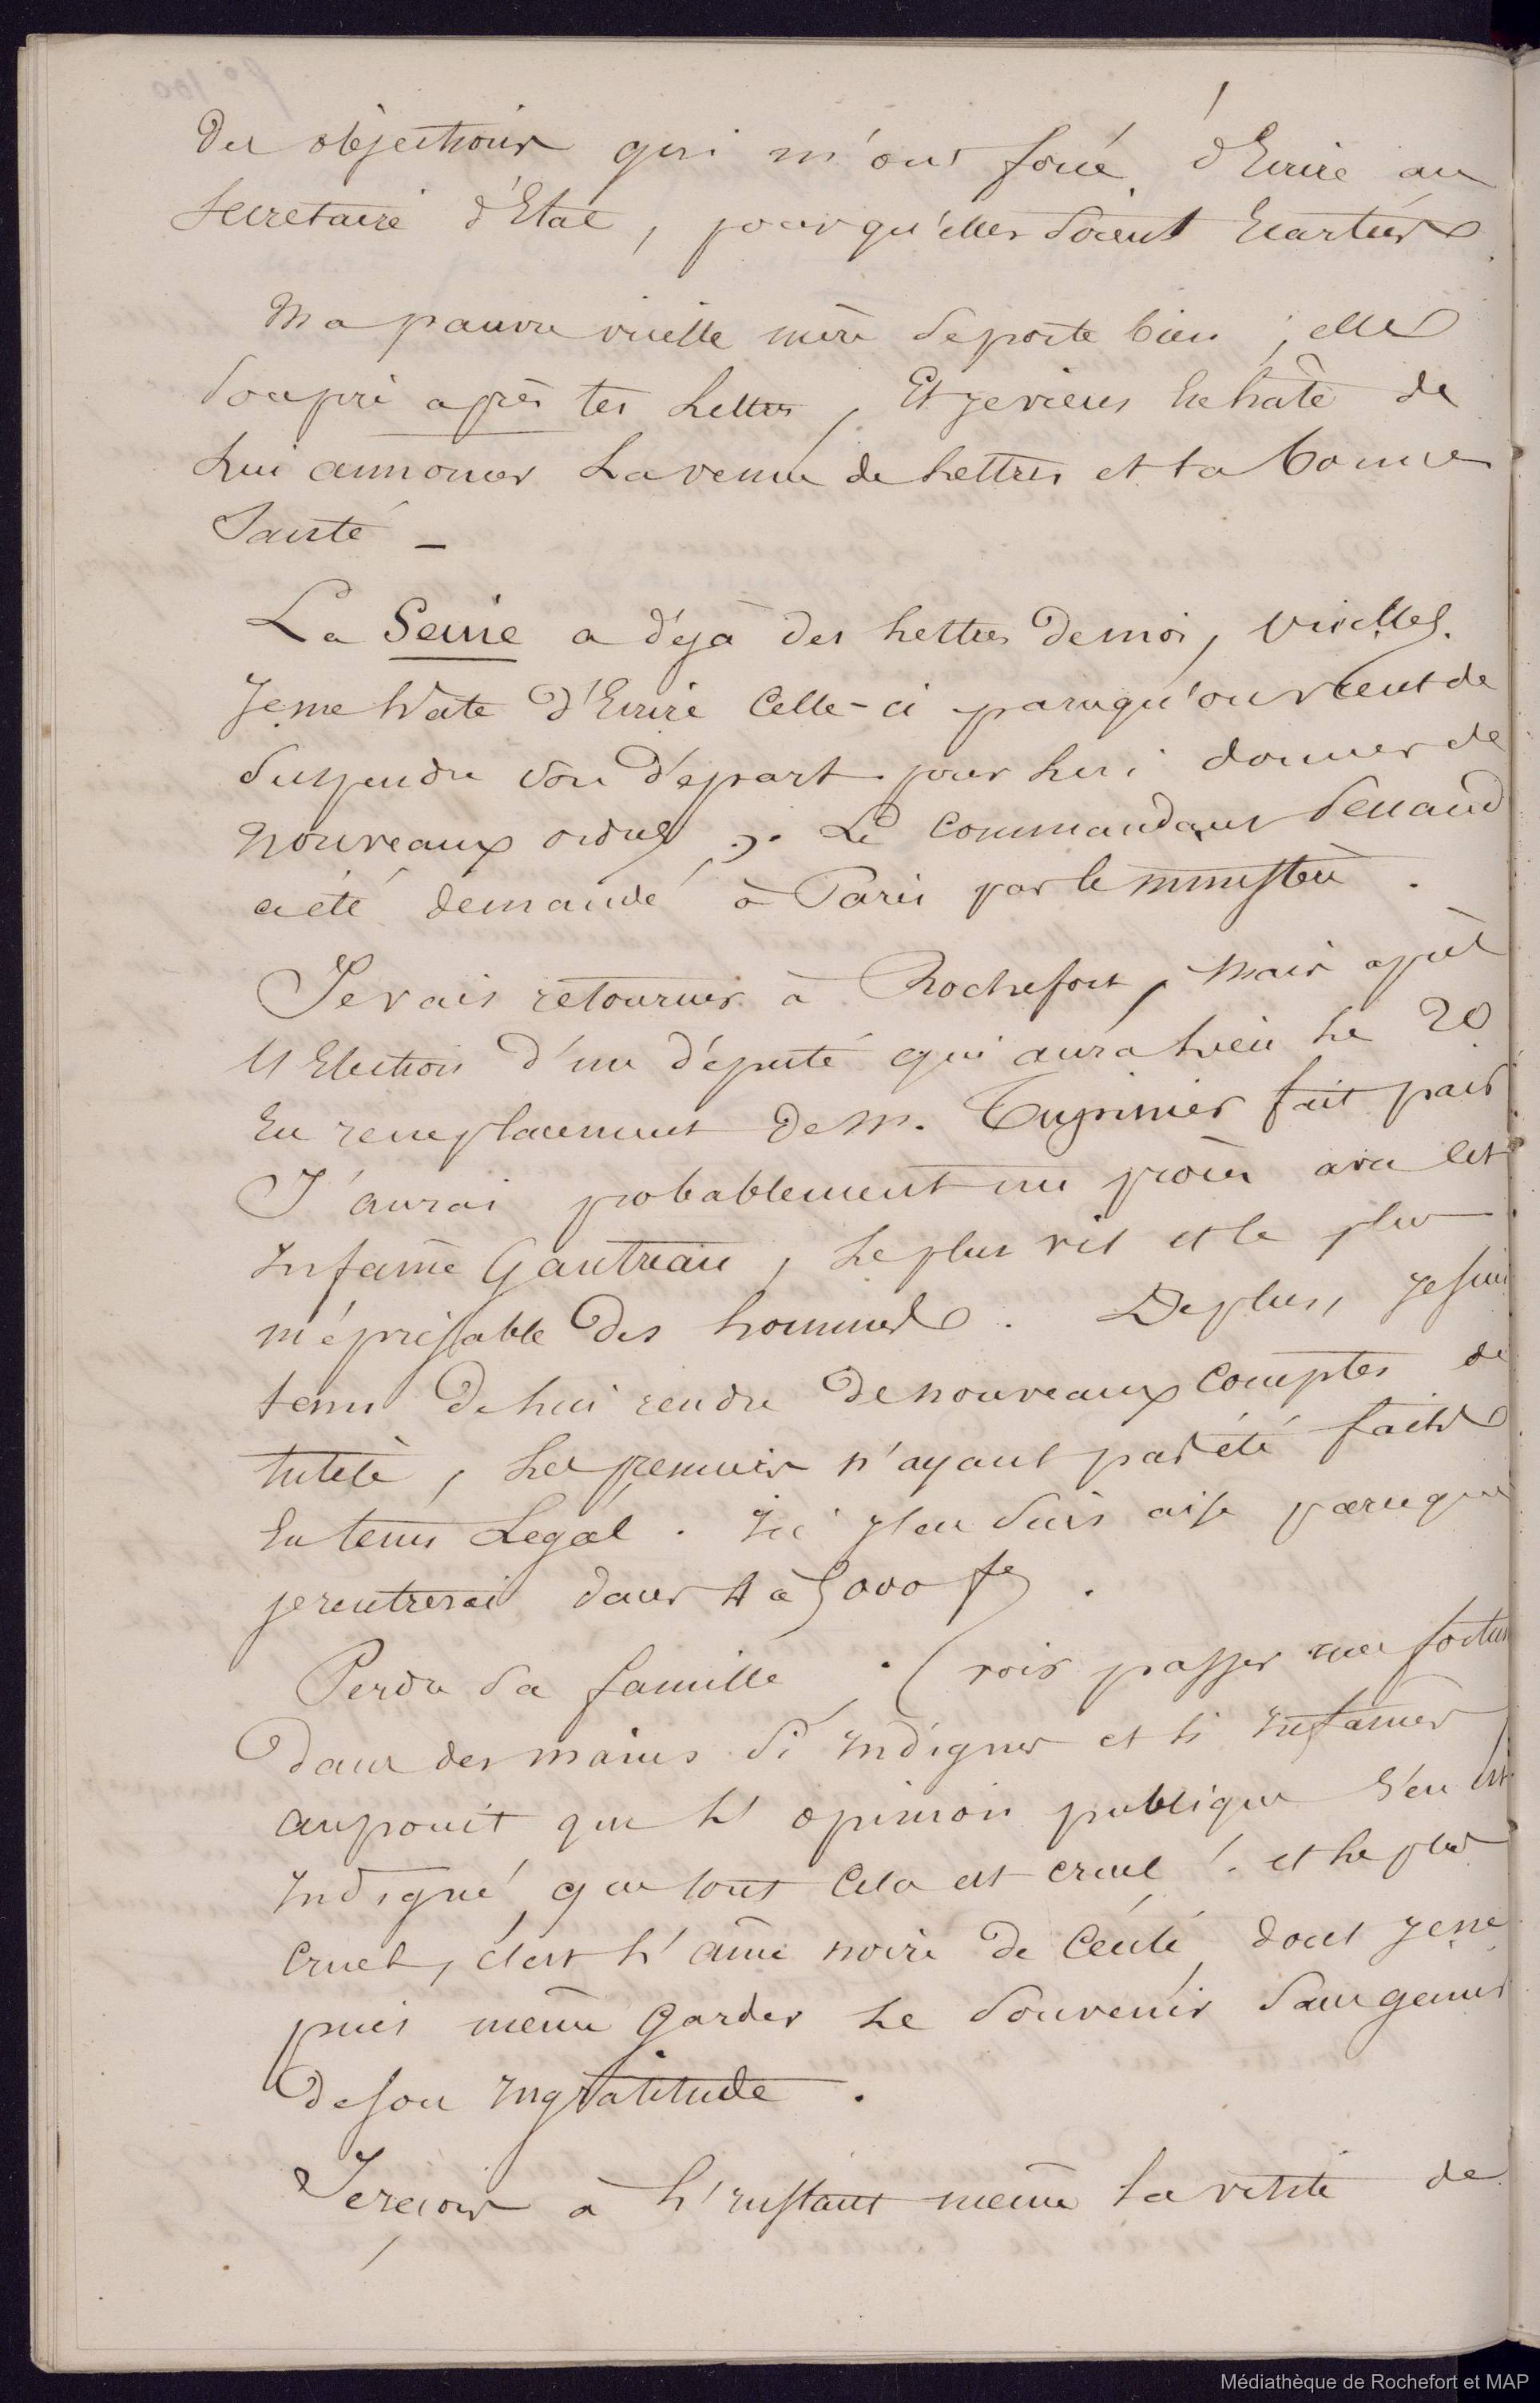 Des objections qui m'ont forcé d'Ecrire au
Secretaire d'Etat, pour qu'elles Soient Ecartées.
Ma pauvre vieille mère Se porte bien ; elle
Soupire après tes Lettres, Et je viens En hâte de
Lui annoncer La venue de Lettres et ta bonne
Santé –
La Seine a dejà des Lettres de moi, vieilles.
Je me hâte d'Ecrire Celle-ci parcequ'on vient de
Suspendre Son départ pour Lui donner de
nouveaux ordres. Le Commandant
a été demandé à Paris par le ministère.
Je vais retourner à Rochefort, mais après
L'Election d'un député qui aura Lieu Le 20
En remplacement de M. fait pair
J'aurai probablement un procès avec cet
Infame Gautreau, Le plus vil et le plus
méprisable des hommes. De plus, Je suis
tenu de Lui rendre de nouveaux Comptes de
tutele, Les premiers n'ayant pas été faits
En tems Légal. Ici J'en Suis aise parceque
je rentrerai dans 4 à 5000 fs.
Perdre Sa famille, voir passer une fortune
Dans des mains Si Indignes et Si Infames
au point que L'opinion publique S'en est
Indigné, que tout Cela est cruel ! et Le plus
Cruel, c'est L'ame noire de dont Je ne
puis même garder Le Souvenir Sans gemir
de son Ingratitude.
Je reçois à L'Instant même La visite de
Médiathèque de Rochefort et MAP